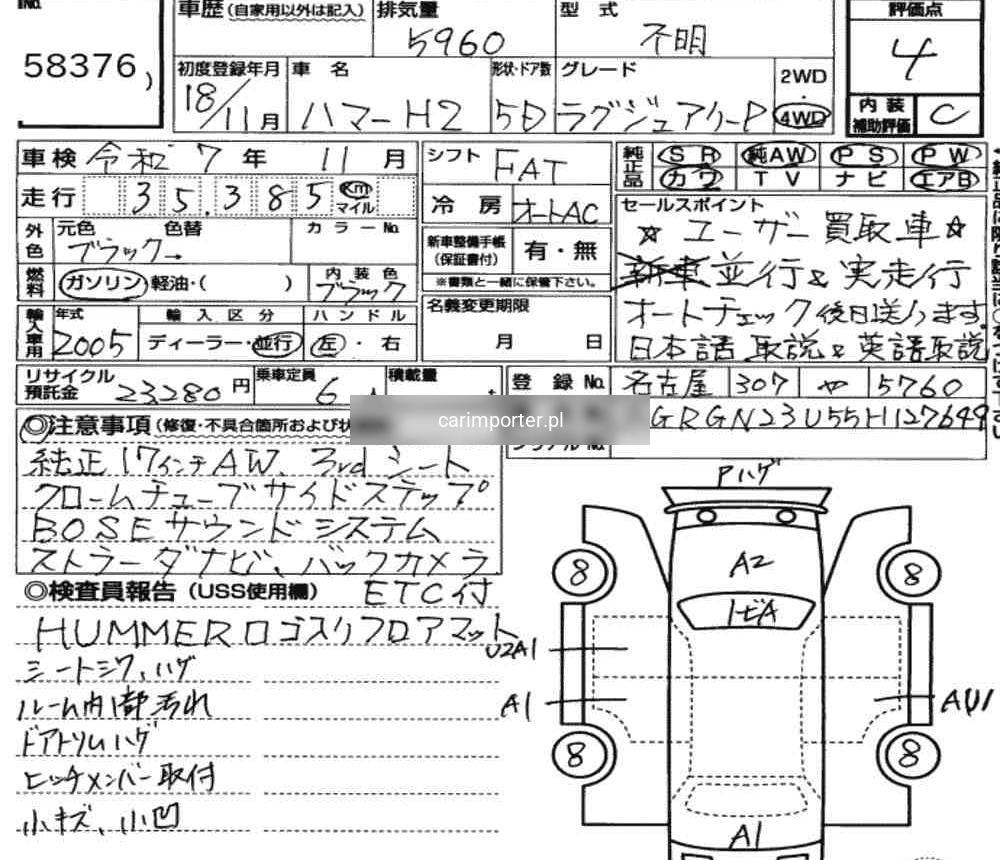 No.
58376
車歴(自家用以外は記入) 排気量 型 式 評価点
5960 不明 4
初度登録年月 車 名 形状・ドア数 グレード 2WD・4WD 内装補助評価 C
18/11月 ハマーH2 5D ラグジュアリーP
車検 令和 7年 11月 シフト FAT
純正品 SR 純AW PS PW
カワ TV ナビ エアB
走行 35,385 Km マイル 冷房 オートAC
セールスポイント
☆ ユーザー買取車☆
新車並行&実走行
オートチェック後日送ります
日本語取説&英語取説
外色 元色 色替 カラーNo.
ブラック→
新車整備手帳(保証書付) 有・無
※書類と一緒に保管下さい。
燃料 ガソリン 軽油・( ) 内装色 ブラック
名義変更期限
月 日
輸入車用 年式 輸入区分 ハンドル
2005 ディーラー・並行 左・右
リサイクル預託金 23280円 乗車定員 6人 積載量
登録No. 名古屋 307 や 5760
GRGN23U55H127649
carimporter.pl
シリアルNo.
◎注意事項(修復・不具合箇所および状
純正17インチAW、3rdシート
クロームチューブサイドステップ
BOSEサウンドシステム
ストラーダナビ、バックカメラ
ETC付
◎検査員報告(USS使用欄)
HUMMERロゴ入りフロアマット
シートシワ、ハゲ
ルーム内1部汚れ
ドアトリムハゲ
ヒッチメンバー取付
小キズ、小凹
Pハゲ
A2
トビA
8
8
U2A1
A1
AU1
8
8
A1